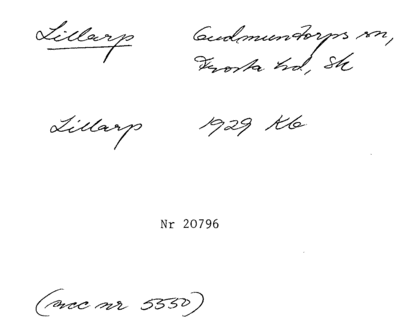 Lillarp Gudmundtorps sn,
Frosta hd, Sk
Lillarp 1929 Kb
Nr 20796
(acc nr 5550)